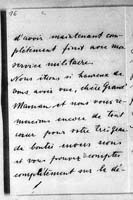 16
d'avoir maintenant com-
plètement fini avec mon
service militaire.
Nous étions si heureux de
vous avoir vue, chère Grand
Maman et nous vous re-
mercions encore de tout
cœur pour votre très grande
bonté envers nous
et vous pouvez compter
complètement sur le dé-